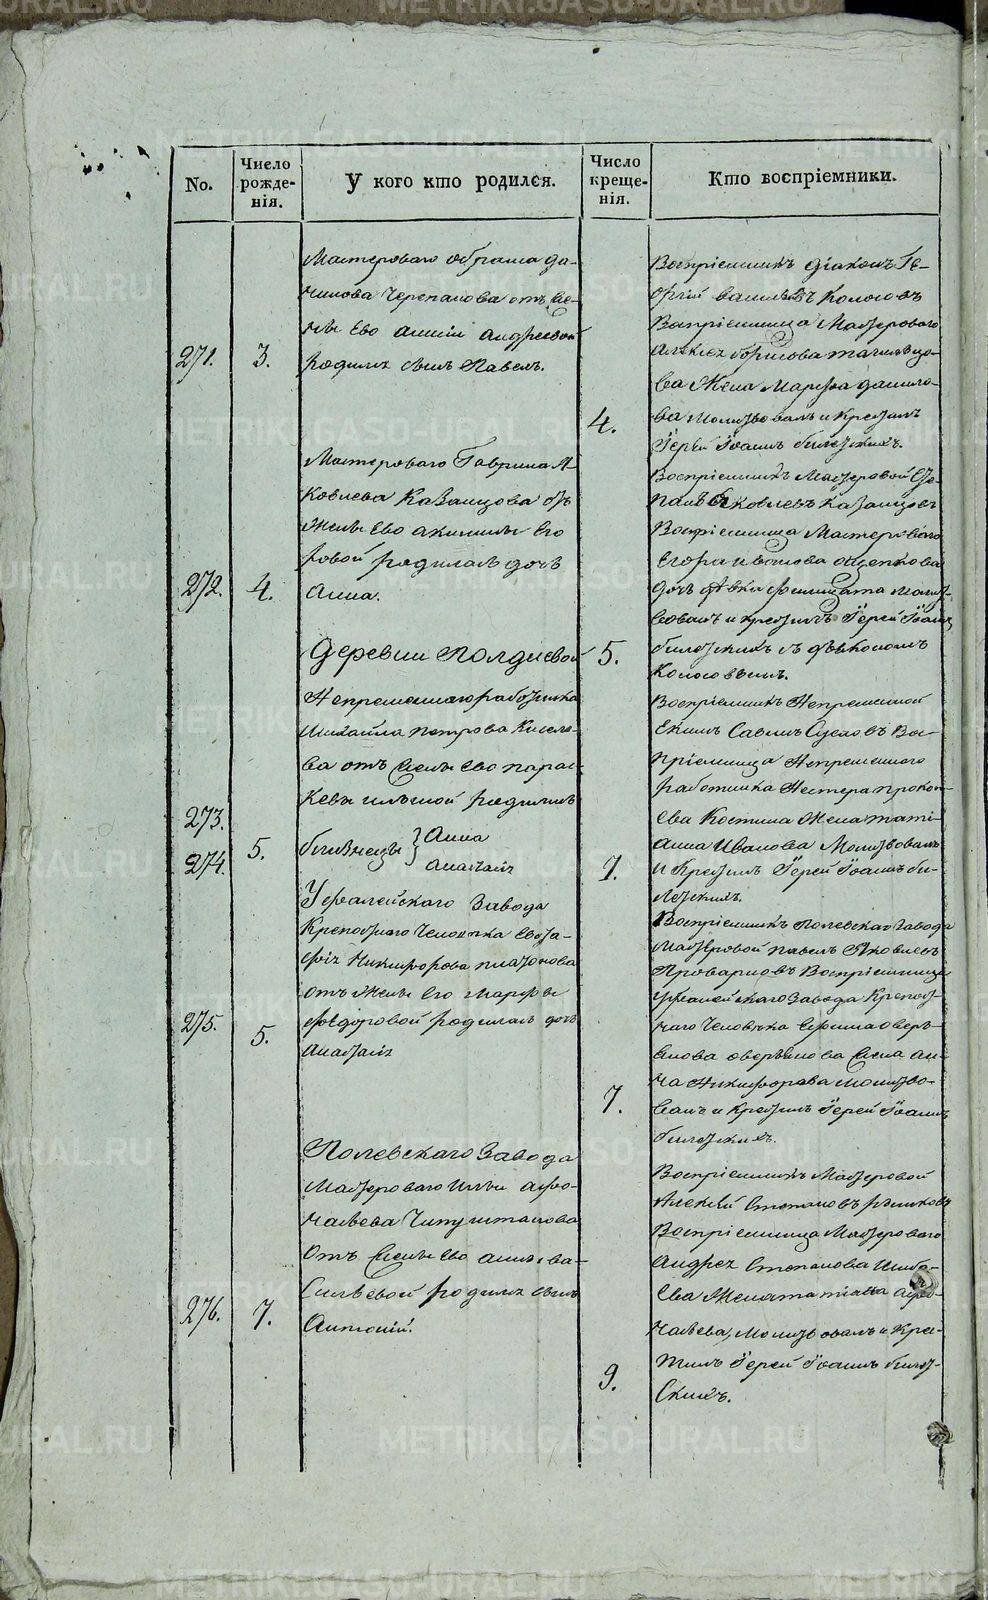 METRIKI.GASO-URAL.RU
No.
Число рожденія.
У кого кто родился.
Число крещенія.
Кто воспріемники.
271.
3.
Мастероваго Абрама Да-
нилова Черепанова отъ же-
ны Ево Андреевой
родился сынъ Павелъ.
4.
Воспріемникъ діаконъ Ге-
оргій Васильевъ Колосовъ
Воспріемница Мастероваго
Алексея Борисова
жена Марфа Данило-
ва молитвовалъ и крестилъ
Іерей Іоаннъ
272.
4.
Мастероваго Гаврила Я-
ковлева Казанцова отъ
жены Ево Акилины Его
ровой родилась дочь
Анна.
5.
Воспріемникъ Мастеровой Сте-
панъ Яковлевъ Казанцовъ
Воспріемница Мастероваго
Егора Иванова
дочь девка молит-
вовалъ и крестилъ Іерей Іоаннъ
съ дьякономъ
Колосовымъ.
273.
274.
5.
Деревни Полдневой
Непременнаго работника
Михайла Петрова Кисело-
ва отъ жены Ево Парас-
кевы родились
близнецы } Анна
Анастасія
7.
Воспріемникъ Непременной
Екимъ Савинъ Сусловъ Вос-
пріемница Непременнаго
работника Нестера Прокоп-
ева Костина жена Тати-
анна Иванова Молитвовалъ
и Крестилъ Іерей Іоаннъ
275.
5.
Уфалейскаго Завода
Крепостнаго Человека Евста-
фія Никифорова Платонова
отъ жены Его Марфы
Федоровой родилась дочь
Анастасія
7.
Воспріемникъ Полевскаго Завода
Мастеровой Павелъ Яковлевъ
Воспріемница
Уфалейскаго Завода Крепост-
наго Человека Ефима Оверь-
янова жена Ан-
на Никифорова молитво-
валъ и крестилъ Іерей Іоаннъ
276.
7.
Полевскаго Завода
Мастероваго Ильи Афо-
насьева Чипуштанова
отъ жены Ево Анны Ва-
сильевой родился сынъ
Антоній.
9.
Воспріемникъ Мастеровой
Алексей Степановъ
Воспріемница Мастероваго
Андрея Степанова
жена Татіана Афо-
насьева, молитвовалъ и кре-
стилъ Іерей Іоаннъ